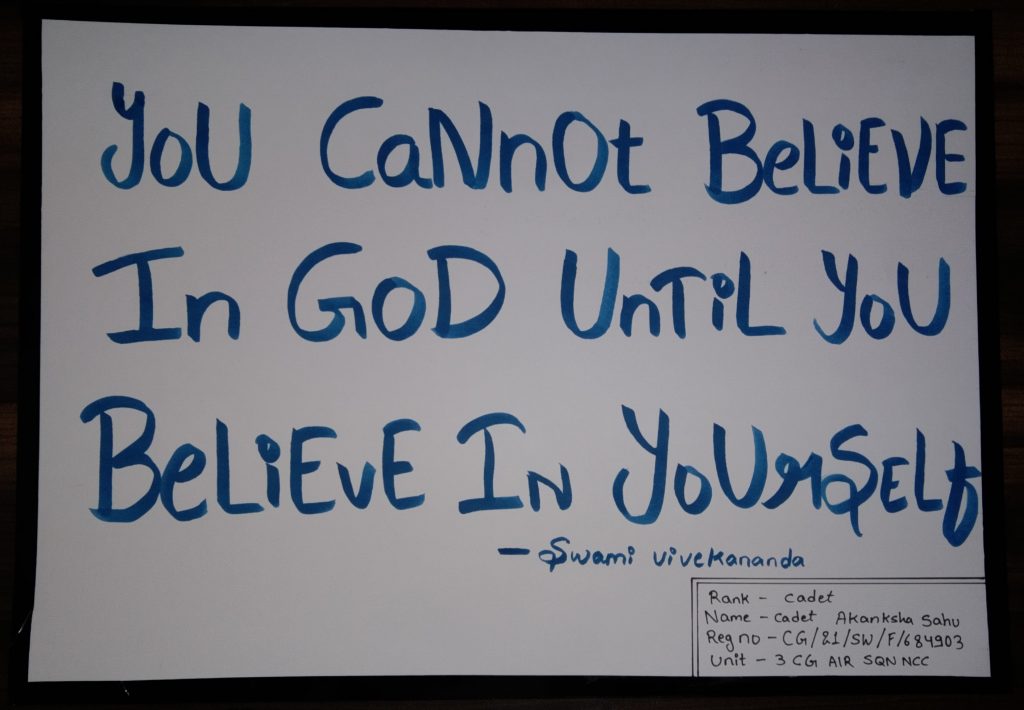 YOU CaNnOt BeLiEVE
In GoD UnTiL YoU
BeLiEvE In YoUrSELf
— Swami Vivekananda
Rank - Cadet
Name - Cadet Akanksha Sahu
Reg no - CG/21/SW/F/684903
Unit - 3 CG AIR SQN NCC